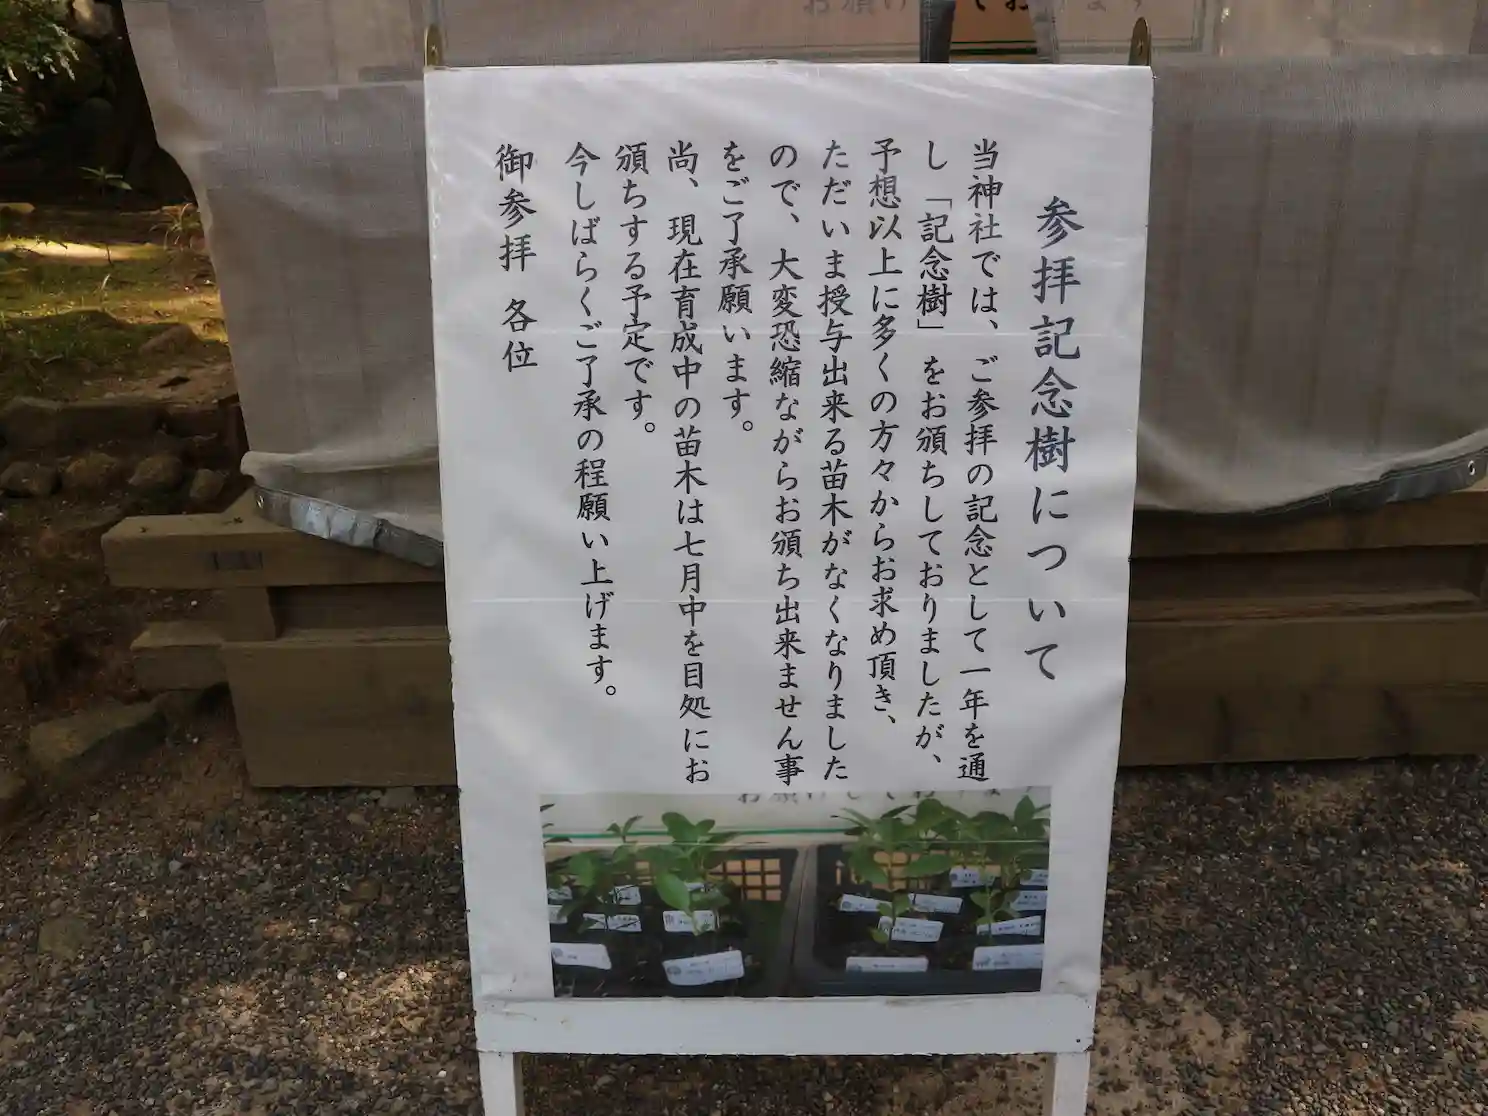 参拝記念樹について
当神社では、ご参拝の記念として一年を通
し「記念樹」をお頒ちしておりましたが、
予想以上に多くの方々からお求め頂き、
ただいま授与出来る苗木がなくなりました
ので、大変恐縮ながらお頒ち出来ません事
をご了承願います。
尚、現在育成中の苗木は七月中を目処にお
頒ちする予定です。
今しばらくご了承の程願い上げます。
御参拝 各位